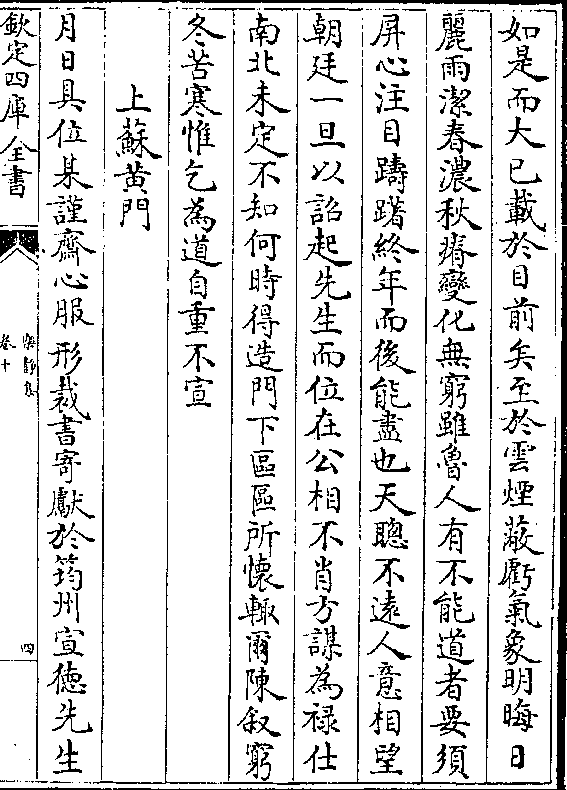 如是而大已載於目前矣至於雲煙蔽虧氣象明晦日
麗雨潔春濃秋瘠變化無窮雖魯人有不能道者要須
屏心注目躊躇終年而後能盡也天聰不遠人意相望
朝廷一旦以詔起先生而位在公相不肖方謀為祿仕
南北未定不知何時得造門下區區所懷輙爾陳叙窮
冬苦寒惟乞為道自重不宣
上蘇黃門
月日具位某謹齋心服形裁書寄獻於筠州宣德先生
欽定四庫全書
卷十
四